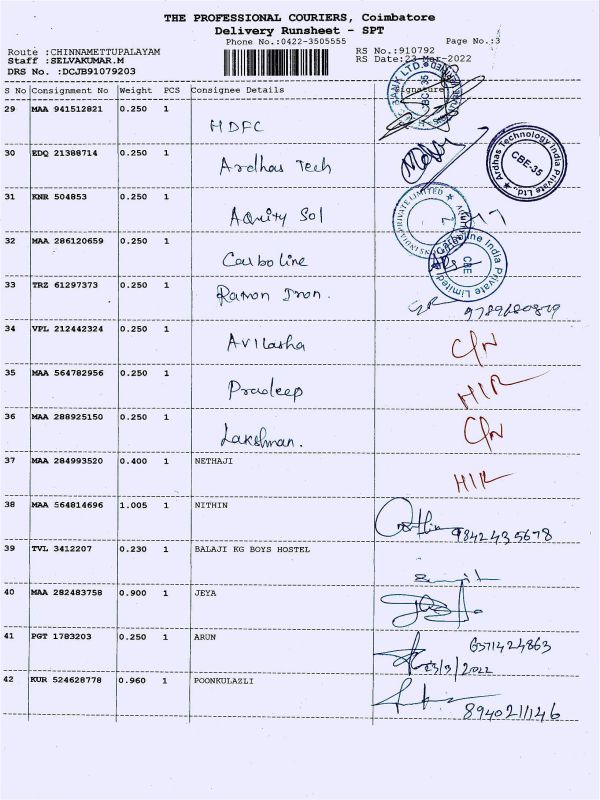 THE PROFESSIONAL COURIERS, Coimbatore
Delivery Runsheet - SPT
Phone No.:0422-3505555 Page No.:3
Route :CHINNAMETTUPALAYAM RS No.:910792
Staff :SELVAKUMAR.M RS Date:23-Mar-2022
DRS No. :DCJB91079203
S No Consignment No Weight PCS Consignee Details Signature
29 MAA 941512821 0.250 1
HDFC
BANK LTD. CBE-35
30 EDQ 21388714 0.250 1
Ardhas Tech
Ardhas Technology India Private Ltd., CBE-35
31 KNR 504853 0.250 1
Aquity Sol
INDIA PRIVATE LIMITED
32 MAA 286120659 0.250 1
Carboline
Carboline India Private Limited CBE
33 TRZ 61297373 0.250 1
Ramon Iron.
9789680879
34 VPL 212442324 0.250 1
Avilasha C/N
35 MAA 564782956 0.250 1
Pradeep HIR
36 MAA 288925150 0.250 1
Lakshman. C/N
37 MAA 284993520 0.400 1 NETHAJI
HIR
38 MAA 564814696 1.005 1 NITHIN
9842435678
39 TVL 3412207 0.230 1 BALAJI KG BOYS HOSTEL
40 MAA 282483758 0.900 1 JEYA
41 PGT 1783203 0.250 1 ARUN
6371424863
23/3/2022
42 KUR 524628778 0.960 1 POONKULAZLI
8940211146